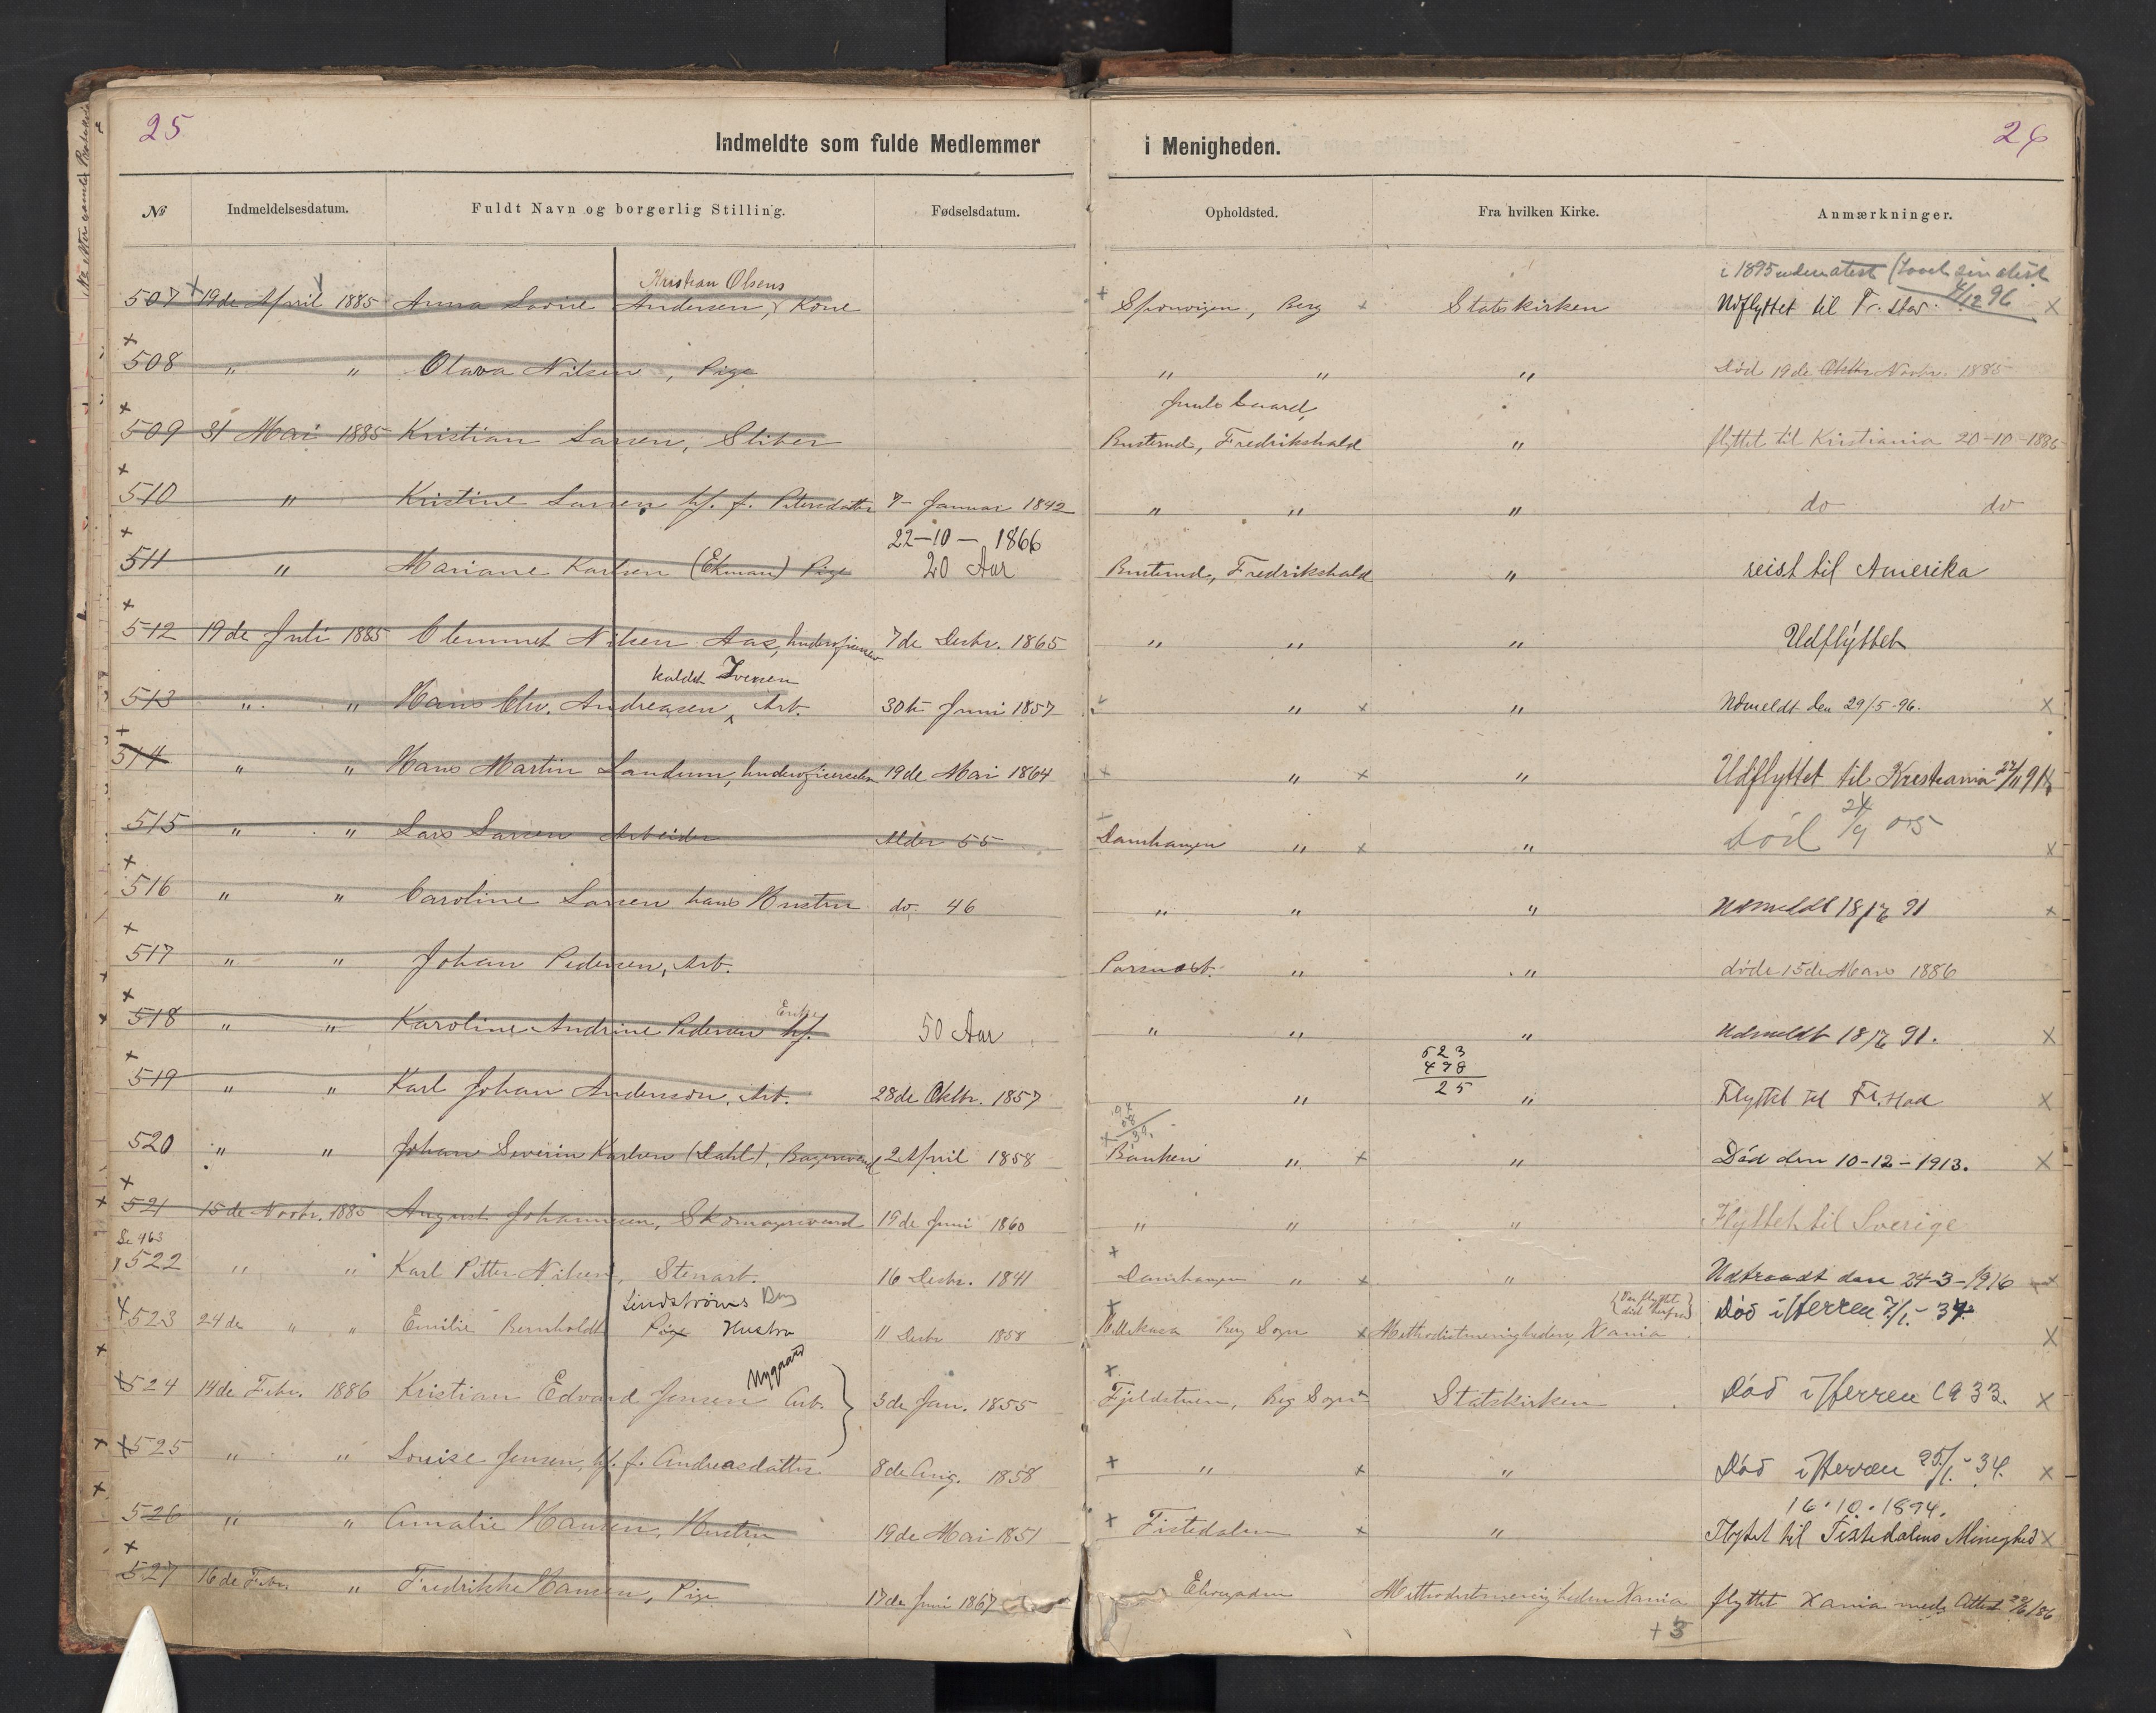 25
Indmeldte som fulde Medlemmer i Menigheden.
26
No Indmeldelsesdatum. Fuldt Navn og borgerlig Stilling. Fødselsdatum. Opholdsted. Fra hvilken Kirke. Anmærkninger.
Kristian Olsens
i 1895 uden atest
507 19de April 1885 Anna Andersen, Kone Sponvigen, Berg Statskirken Udflyttet til Fr.stad. 4/12 96
508 " " Olava Nilsen, Pige " " " Død 19de Oktbr Novbr. 1885
509 31 Mai 1885 Kristian Larsen, Sliber Busterud, Fredrikshald " flyttet til Kristiania 20-10-1886
510 " Kristine Larsen hf. f. Petersdatter 7- Januar 1842 " " " do do
22-10- 1866
511 " Mariane Karlsen (Ekman) Pige 20 Aar Busterud, Fredrikshald " reist til Amerika
512 19de Juli 1885 Clemmet Nilsen Aas, 7de Decbr. 1865 " " " Udflyttet
kaldet Iversen
513 " " Hans Chr. Andreasen, Arb. 30te Juni 1857 " " " Udmeldt den 29/5-96.
514 " " Hans Martin Sandum, 19de Mai 1864 " " Udflyttet til Kristiania 27/11 91
515 " " Lars Larsen Arbeider Alder 55 Damhaugen " " Død 24/9 05
516 " " Caroline Larsen hans Hustru do. 46 " " " Udmeldt 18/12 91
517 " " Johan Pedersen, Arb. " " døde 15de Mars 1886
Enke
518 " " Karoline Andrine Pedersen hf. 50 Aar " " " Udmeldt 18/12 91.
523
498
25
519 " " Karl Johan Anderson, Arb. 28de Oktbr. 1857 " " Flyttet til Fr.stad
520 " " Johan Severin Karlsen (Dahl), 2 April 1858 Banken " " Død den 10-12-1913.
521 15de Novbr. 1885 August Johannesen, Skomagersvend 15de Juni 1860 " " " Flyttet til Sverige
Se 463
522 " " Karl Petter Nilsen, Stenarb. 16 Decbr. 1841 Damhaugen " " Udtraadt den 24-3-1916
Lindstrøms
523 24de " " Emilie Bernholdt Pige Hustru 11 Decbr 1858 Berg Sogn Methodistmenigheden, Xania Død i Herren 7/1.-34.
Nygaard
524 14de Febr. 1886 Kristian Edvard Jensen Arb. 3de Jan. 1855 Fjeldstuen, Berg Sogn Statskirken Død i Herren 1933.
525 " " Louise Jensen, hf. f. Andreasdatter 8de Aug. 1858 " " Død i Herren 25/1.-34.
16.10.1894.
526 " " Amalie Hansen, Hustru 19de Mai 1851 Tistedalen " Flyttet til Tistedalens Menighed
527 16de Febr. " Fredrikke Hansen, Pige 17de Juni 1867 Methodistmenigheden Xania flyttet Xania med Attest 20/6/86
+3